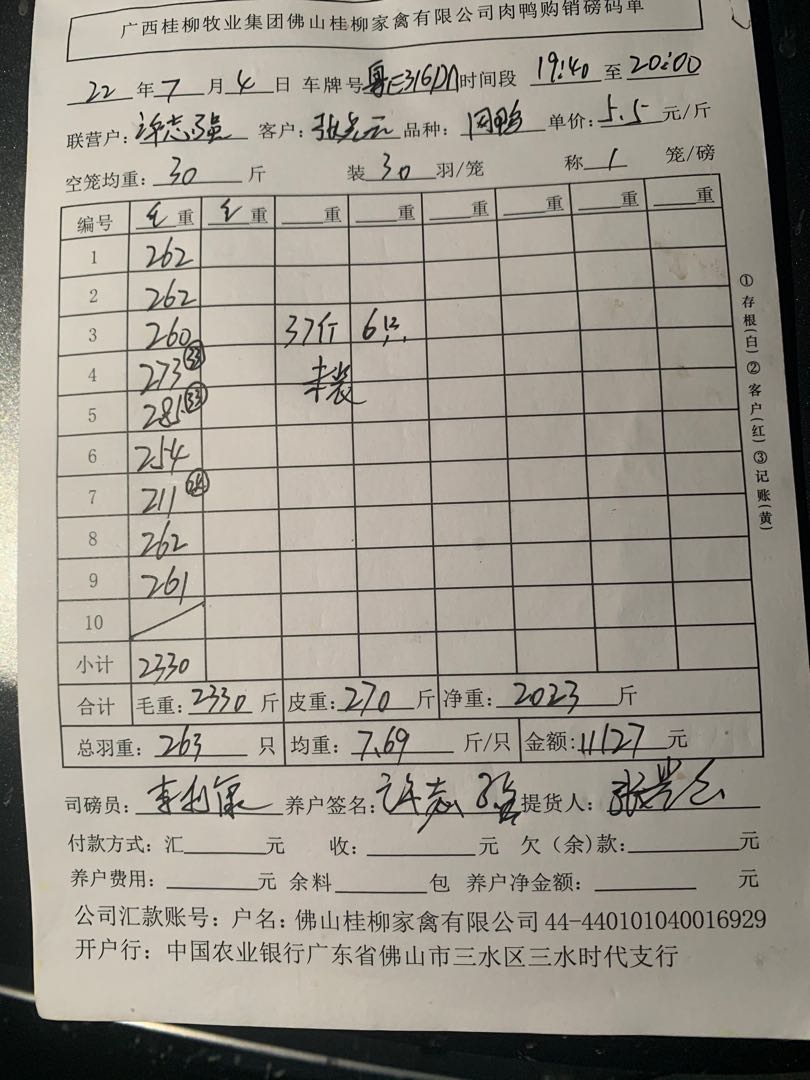 广西桂柳牧业集团佛山桂柳家禽有限公司肉鸭购销磅码单
22 年 7 月 4 日 车牌号 粤E316 时间段 19:40 至 20:00
联营户: 许志强 客户: 张 元 品种: 肉鸭 单价: 5.5 元/斤
空笼均重: 30 斤 装 30 羽/笼 称 1 笼/磅
编号 毛重 毛重 重 重 重 重 重 重
1 262
2 262
3 260 37斤 6只
4 273 ㉝ 未装
5 285 ㉝
6 254
7 211 ㉔
8 262
9 261
10
小计 2330
合计 毛重: 2330 斤 皮重: 270 斤 净重: 2023 斤
总羽重: 263 只 均重: 7.69 斤/只 金额: 11127 元
司磅员: 李 养户签名: 许志强 提货人: 张
付款方式: 汇 元 收: 元 欠(余)款: 元
养户费用: 元 余料 包 养户净金额: 元
公司汇款账号: 户名: 佛山桂柳家禽有限公司 44-440101040016929
开户行: 中国农业银行广东省佛山市三水区三水时代支行
①存根(白)②客户(红)③记账(黄)